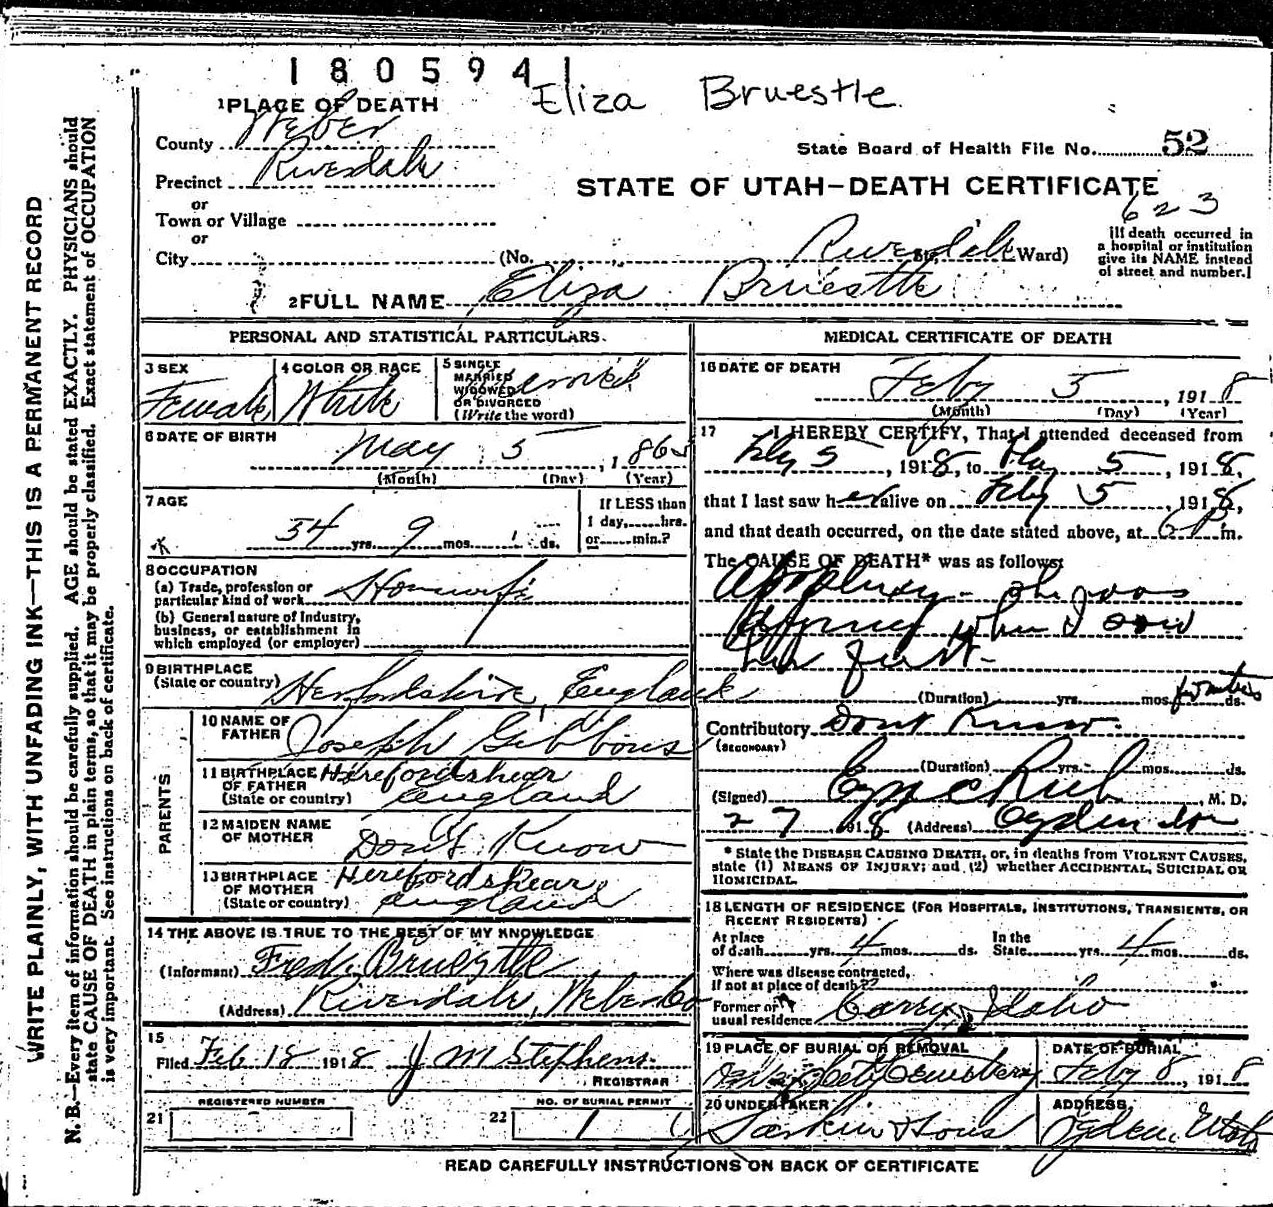 1805941
Eliza Bruestle
1 PLACE OF DEATH
County Weber
State Board of Health File No. 52
Precinct Riverdale
STATE OF UTAH—DEATH CERTIFICATE
623
or
Town or Village
or
City (No. Riverdale St. Ward)
[If death occurred in
a hospital or institution
give its NAME instead
of street and number.]
2 FULL NAME Eliza Bruestle
PERSONAL AND STATISTICAL PARTICULARS.
3 SEX
Female
4 COLOR OR RACE
White
5 SINGLE
MARRIED
WIDOWED
OR DIVORCED
(Write the word)
6 DATE OF BIRTH
May 5, 1865
(Month) (Day) (Year)
7 AGE
54 yrs. 9 mos. ds.
If LESS than
1 day, hrs.
or min.?
8 OCCUPATION
(a) Trade, profession or
particular kind of work Housewife
(b) General nature of Industry,
business, or establishment in
which employed (or employer)
9 BIRTHPLACE
(State or country) Herfordshire, England
PARENTS
10 NAME OF
FATHER Joseph Gibbons
11 BIRTHPLACE
OF FATHER
(State or country)
Herefordshear
England
12 MAIDEN NAME
OF MOTHER
Don't Know
13 BIRTHPLACE
OF MOTHER
(State or country)
Herefordshear
England
14 THE ABOVE IS TRUE TO THE BEST OF MY KNOWLEDGE
(Informant) Fred Bruestle
(Address) Riverdale, Weber Co
15
Filed Feb 18 1918 J M Stephens
REGISTRAR
REGISTERED NUMBER
21
NO. OF BURIAL PERMIT
22 1
MEDICAL CERTIFICATE OF DEATH
16 DATE OF DEATH
Feby 5, 1918
(Month) (Day) (Year)
17 I HEREBY CERTIFY, That I attended deceased from
Feby 5, 1918, to Feby 5, 1918,
that I last saw her alive on Feby 5, 1918,
and that death occurred, on the date stated above, at 6 P m.
The CAUSE OF DEATH* was as follows:
Apoplexy - She was
dying when I saw
her first-
(Duration) yrs. mos. ds.
Contributory Dont Know.
(SECONDARY)
(Duration) yrs. mos. ds.
(Signed) Rich, M. D.
2 7 1918 (Address) Ogden
* State the DISEASE CAUSING DEATH, or, in deaths from VIOLENT CAUSES,
state (1) MEANS OF INJURY; and (2) whether ACCIDENTAL, SUICIDAL OR
HOMICIDAL.
18 LENGTH OF RESIDENCE (FOR HOSPITALS, INSTITUTIONS, TRANSIENTS, OR
RECENT RESIDENTS)
At place
of death yrs. 4 mos. ds.
In the
State yrs. 4 mos. ds.
Where was disease contracted,
if not at place of death?
Former or
usual residence Carey, Idaho
19 PLACE OF BURIAL OR REMOVAL
City Cemetery
DATE OF BURIAL
Feby 8, 1918
20 UNDERTAKER
Larkin & Sons
ADDRESS
Ogden, Utah
READ CAREFULLY INSTRUCTIONS ON BACK OF CERTIFICATE
WRITE PLAINLY, WITH UNFADING INK—THIS IS A PERMANENT RECORD
N. B.—Every item of information should be carefully supplied. AGE should be stated EXACTLY. PHYSICIANS should
state CAUSE OF DEATH in plain terms, so that it may be properly classified. Exact statement of OCCUPATION
is very important. See instructions on back of certificate.